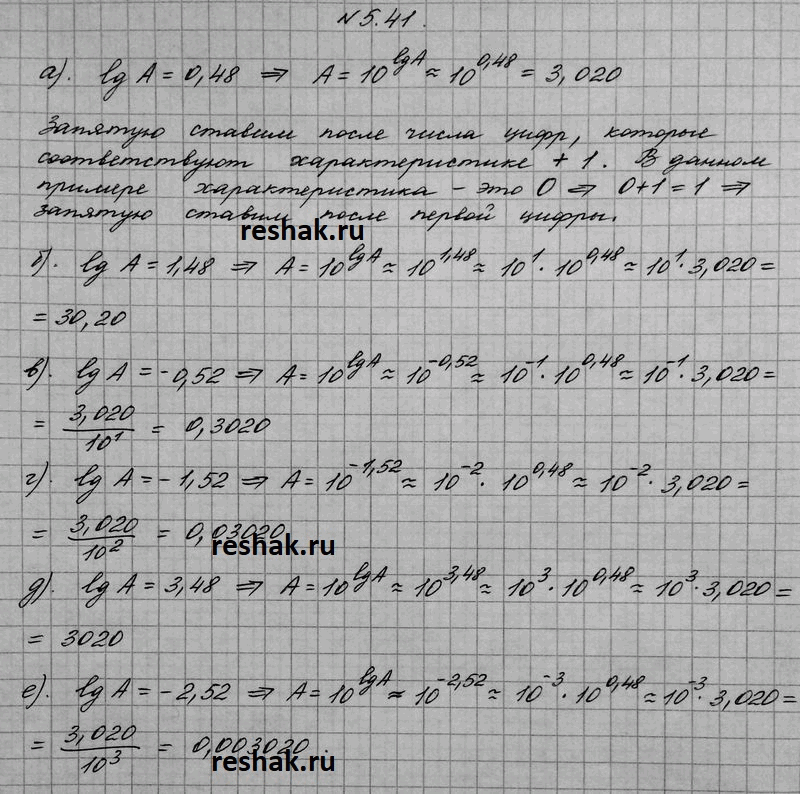 № 5.41.
а). lg A = 0,48 ⇒ A = 10^lgA ≈ 10^0,48 = 3,020
Запятую ставим после числа цифр, которые
соответствуют характеристике + 1. В данном
примере характеристика - это 0 ⇒ 0+1 = 1 ⇒
запятую ставим после первой цифры.
reshak.ru
б). lg A = 1,48 ⇒ A = 10^lgA ≈ 10^1,48 ≈ 10^1 · 10^0,48 ≈ 10^1 · 3,020 =
= 30,20
в). lg A = -0,52 ⇒ A = 10^lgA ≈ 10^-0,52 ≈ 10^-1 · 10^0,48 ≈ 10^-1 · 3,020 =
= 3,020/10^1 = 0,3020
г). lg A = -1,52 ⇒ A = 10^-1,52 ≈ 10^-2 · 10^0,48 ≈ 10^-2 · 3,020 =
= 3,020/10^2 = 0,03020
reshak.ru
д). lg A = 3,48 ⇒ A = 10^lgA ≈ 10^3,48 ≈ 10^3 · 10^0,48 ≈ 10^3 · 3,020 =
= 3020
е). lg A = -2,52 ⇒ A = 10^lgA ≈ 10^-2,52 ≈ 10^-3 · 10^0,48 ≈ 10^-3 · 3,020 =
= 3,020/10^3 = 0,003020.
reshak.ru